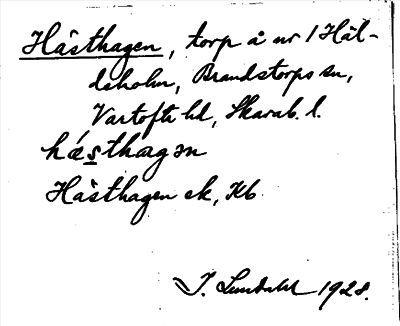 Hästhagen, torp å nr 1 Häl-
dsholm, Brandstorps sn,
Vartofta hd, Skarab. l.
hǽsthagən
Hästhagen ek, Kb
I. Lundahl 1928.